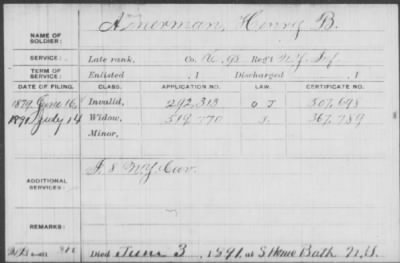 NAME OF SOLDIER: Amerman, Henry B.
SERVICE: Late rank, Co. K, 98 Reg't N.Y. Inf.
TERM OF SERVICE: Enlisted , 1 Discharged , 1
DATE OF FILING. CLASS. APPLICATION NO. LAW. CERTIFICATE NO.
1879 June 16, Invalid, 292,313 O J 507,698
1891 July 14 Widow, 519,770 367,789
Minor,
ADDITIONAL SERVICES: N.Y. Cav.
REMARKS:
Died June 3, 1891, at Bath N.Y.